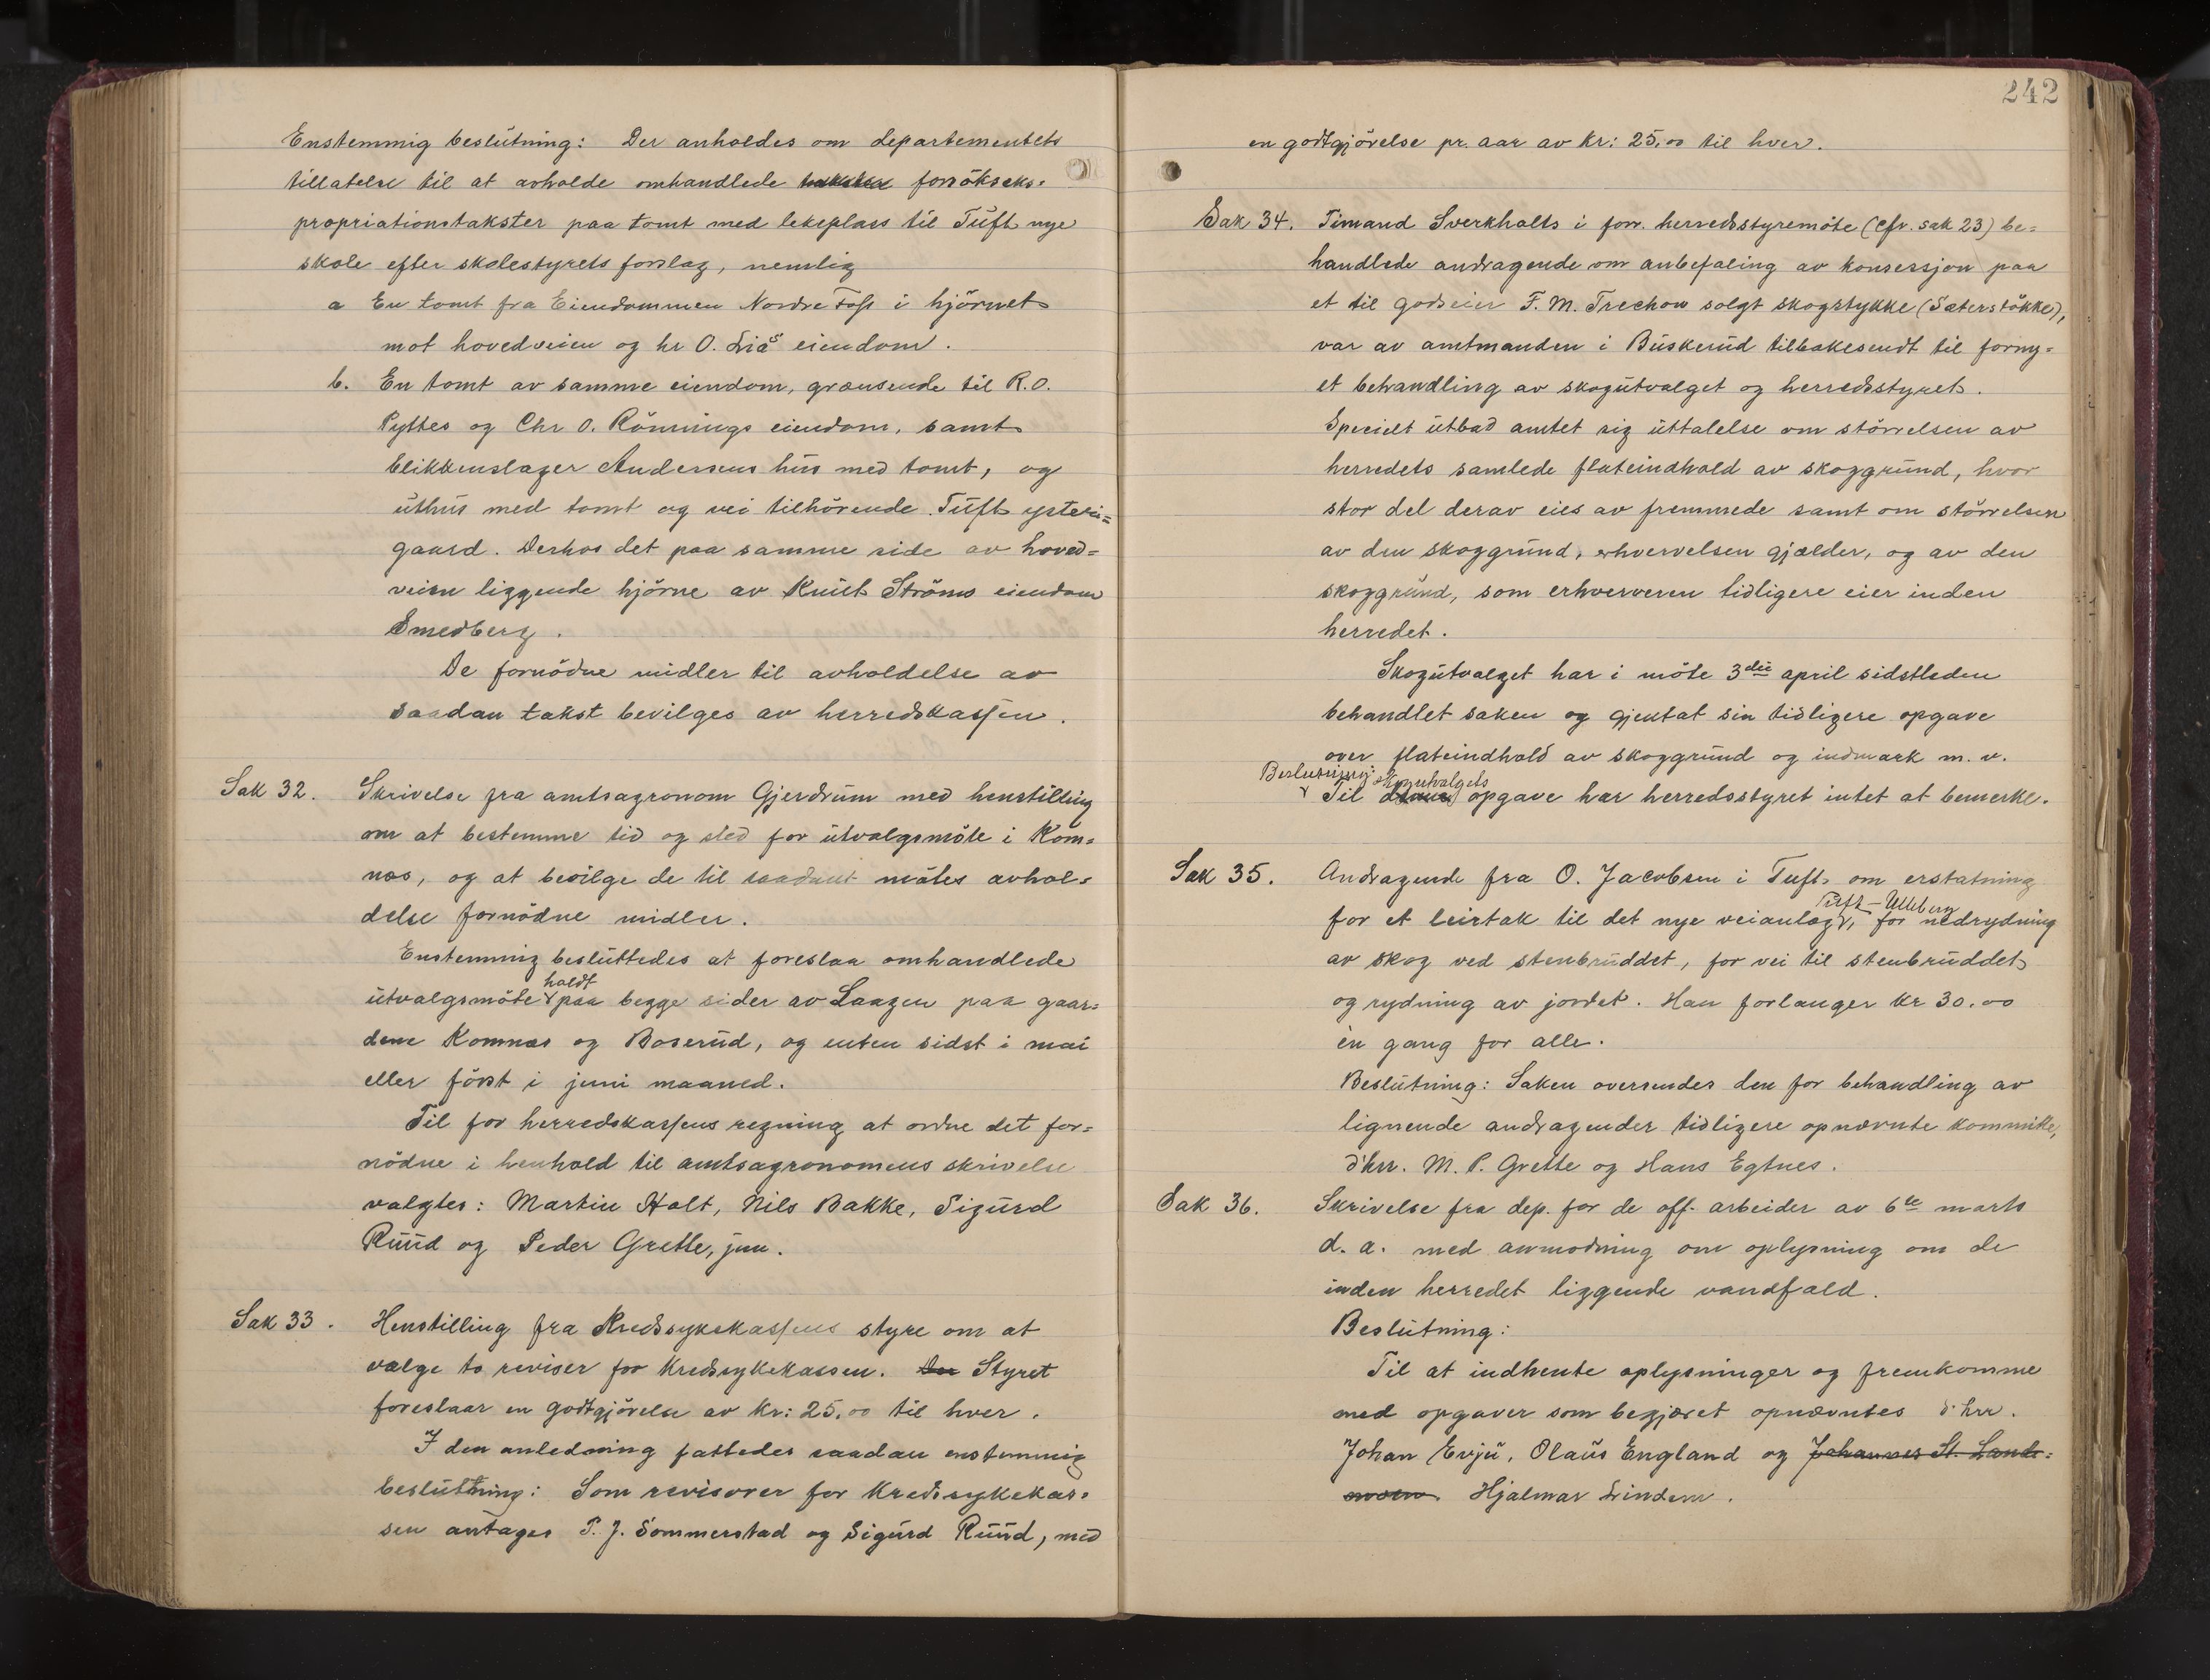 Enstemmig beslutning: Der anholdes om departementets
tillatelse til at avholde omhandlede forsökseks-
propriationstakster paa tomt med lekeplass til Tuft nye
skole efter skolestyrets forslag, nemlig
a En tomt fra Eiendommen Nordre Foss i hjörnet
mot hovedveien og hr O. Liås eiendom.
b. En tomt av samme eiendom, grænsende til R. O.
Pyttes og Chr O. Rönnings eiendom, samt
blikkenslager Andersens hus med tomt, og
uthus med tomt og vei tilhörende Tuft ysteri=
gaard. Derhos det paa samme side av hoved=
veien liggende hjörne av Knut Ströms eiendom
Smedberg.
De fornödne midler til avholdelse av
saadan takst bevilges av herredskassen.
Sak 32. Skrivelse fra amtsagronom Gjerdrum med henstilling
om at bestemme tid og sted for utvalgsmöte i Kom=
nes, og at bevilge de til saadant mötes avhol=
delse fornödne midler.
Enstemmig besluttedes at foreslaa omhandlede
utvalgsmöte holdt paa begge sider av Laagen paa gaar=
dene Komnæs og Boserud, og enten sidst i mai
eller först i juni maaned.
Til for herredskassens regning at ordne det for=
nödne i henhold til amtsagronomens skrivelse
valgtes: Martin Holt, Nils Bakke, Sigurd
Ruud og Peder Grette, jun.
Sak 33. Henstilling fra Kredssykekassens styre om at
vælge to reviser for kredssykekassen. Der Styret
foreslaar en godtgjörelse av kr: 25.00 til hver.
I den anledning fattedes saadan enstemmig
beslutning: Som revisorer for kredssykekas=
sen antages P. J. Sommerstad og Sigurd Ruud, med
242
en godtgjörelse pr. aar av kr: 25.00 til hver.
Sak 34. Timand Sverkholts i forr. herredsstyremöte (cfr. sak 23) be=
handlede andragende om anbefaling av konsessjon paa
et til godseier F. M. Treschow solgt skogstykke (Sæterstökke),
var av amtmanden i Buskerud tilbakesendt til forny=
et behandling av skogutvalget og herredsstyret.
Specielt utbad amtet sig uttalelse om störrelsen av
herredets samlede flateindhold av skoggrund, hvor
stor del derav eies av fremmede samt om störrelsen
av den skoggrund, erhvervelsen gjælder, og av den
skoggrund, som erhververen tidligere eier inden
herredet.
Skogutvalget har i möte 3die april sidstleden
behandlet saken og gjentat sin tidligere opgave
over flateindhold av skoggrund og indmark m. v.
Beslutning: skogutvalgets
Til denne opgave har herredsstyret intet at bemerke.
Sak 35. Andragende fra O. Jacobsen i Tuft om erstatning
Tuft – Ulleberg
for et leirtak til det nye veianlæg, for nedrydning
av skog ved stenbruddet, for vei til stenbruddet
og rydning av jordet. Han forlanger kr 30.00
èn gang for alle.
Beslutning: Saken oversendes den for behandling av
lignende andragender tidligere opnævnte kommitte,
d'hrr. M. P. Grette og Hans Egtnes.
Sak 36. Skrivelse fra dep. for de off. arbeider av 6te marts
d. a. med anmodning om oplysning om de
inden herredet liggende vandfald.
Beslutning:
Til at indhente oplysninger og fremkomme
med opgaver som begjæret opnævntes d'hrr.
Johan Evju, Olaus England og Johannes St. Land=
Hjalmar Lindem.